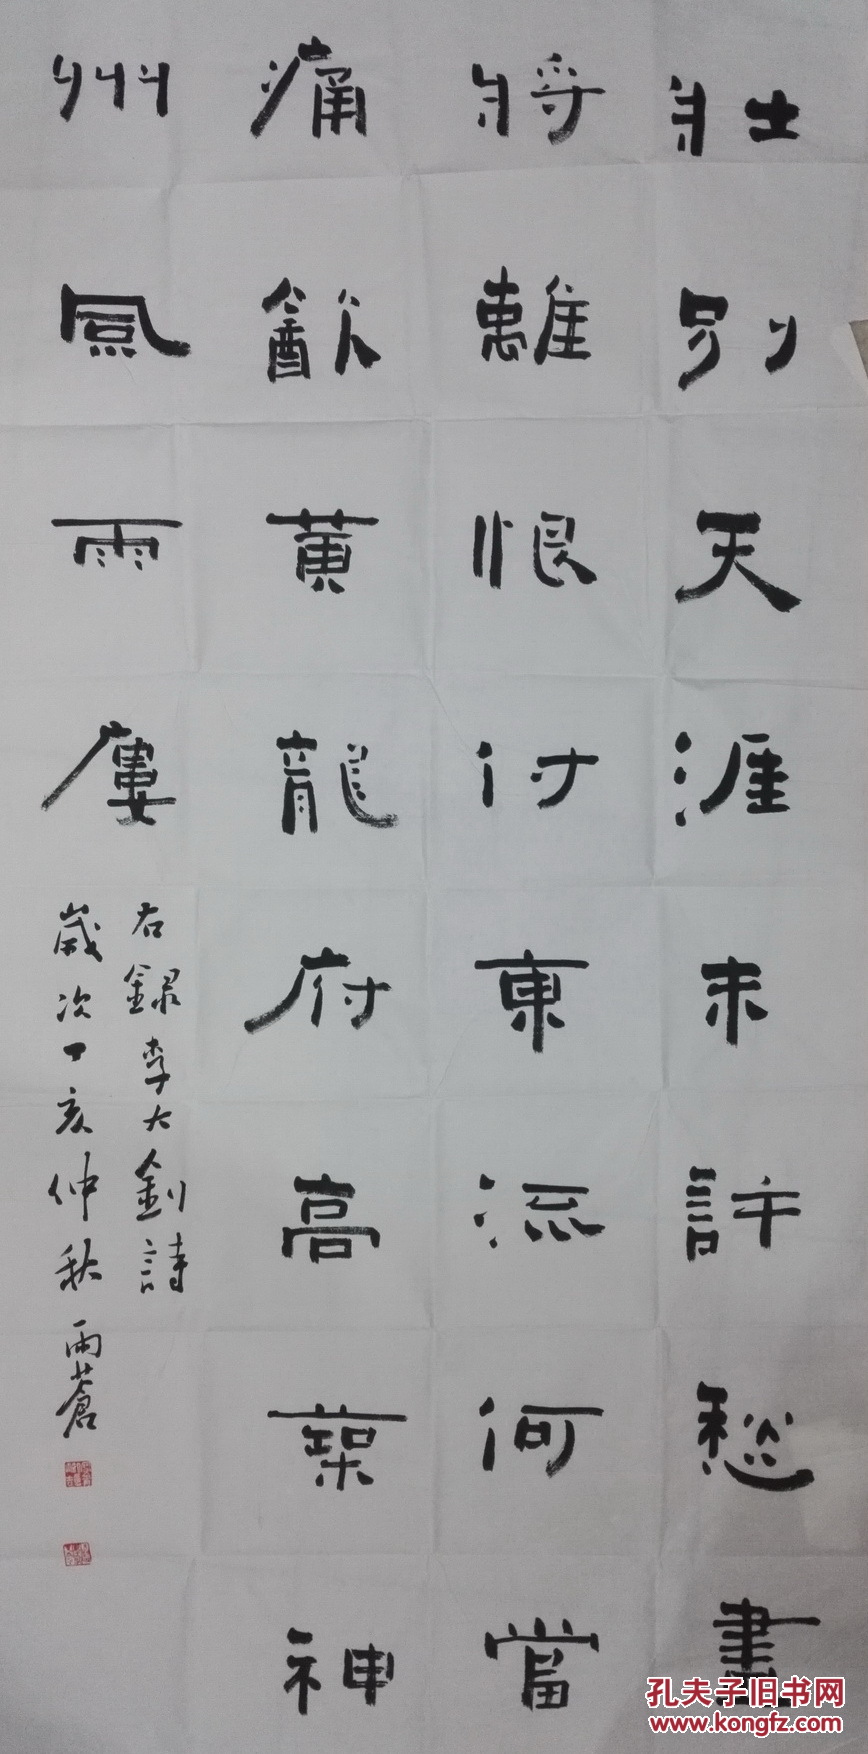 壯別天涯未許愁盡
將離恨付東流何當
痛㱃黃龍府高築神
州風雨廔
右錄李大釗詩
歲次丁亥仲秋雨蒼
孔夫子旧书网
www.kongfz.com